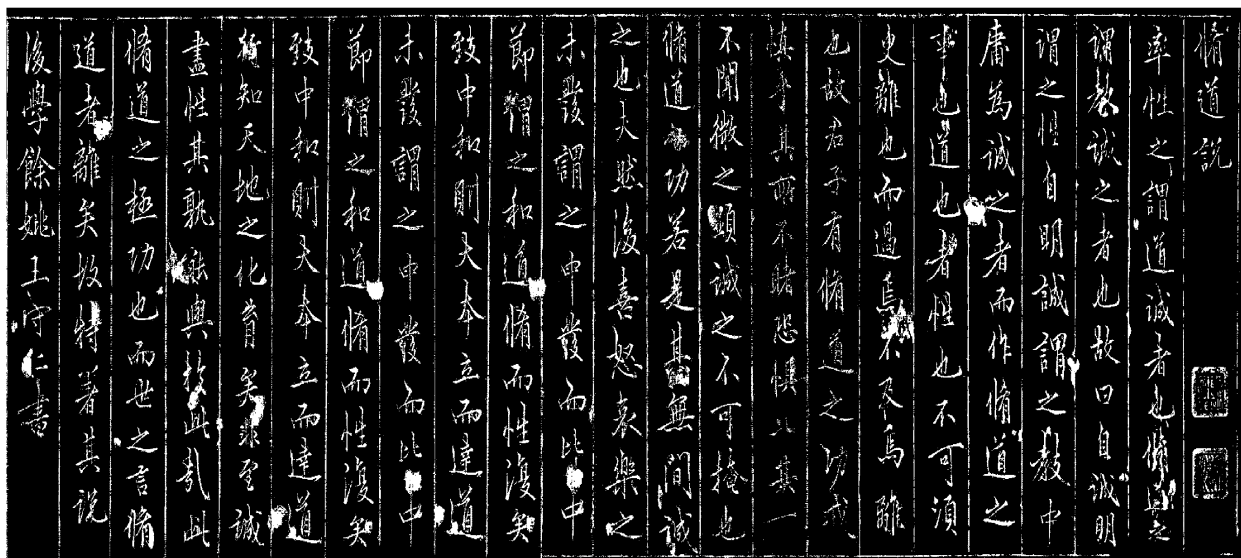 脩道說
率性之謂道誠者也脩道之
謂教誠之者也故曰自誠明
謂之性自明誠謂之教中
庸為誠之者而作脩道之
事也道也者性也不可須
臾離也而過焉不及焉離
也故君子有脩道之功戒
慎乎其所不睹恐懼乎其
不聞微之顯誠之不可掩也
脩道之功若是其無間誠
之也夫然後喜怒哀樂之
未發謂之中發而皆中
節謂之和道脩而性復矣
致中和則大本立而達道
未發謂之中發而皆中
節謂之和道脩而性復矣
致中和則大本立而達道
行知天地之化育矣非至誠
盡性其孰能與於此哉此
脩道之極功也而世之言脩
道者離矣故特著其說
後學餘姚王守仁書